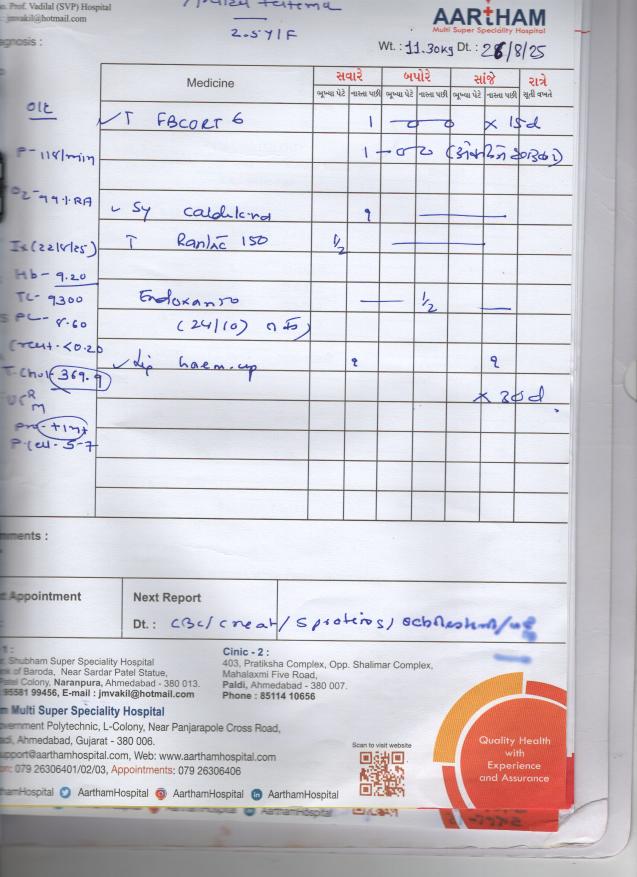 o. Prof. Vadilal (SVP) Hospital
: jmvakil@hotmail.com
2.5Y/F
AARTHAM
Multi Super Speciality Hospital
Wt. : 11.30kg Dt. : 26/8/25
agnosis :
Medicine
સવારે બપોરે સાંજે રાત્રે
ભૂખ્યા પેટે નાસ્તા પછી ભૂખ્યા પેટે નાસ્તા પછી ભૂખ્યા પેટે નાસ્તા પછી સૂતી વખતે
T FBCORT 6 1 x 15d
P-118/min 1
O2-99% RA
Sy 1
Ix(22/8/25) T Rantac 150 1/2
Hb- 9.20
TC- 9300 Endoxan 50 1/2
PC- 8.60 (24/10)
Creat- <0.20
T.Chol- 369.9 haem-up ૧ ૧
x 30d
UCR
M
Pro- +1
P.Cell- 5-7
mments :
Appointment
Next Report
Dt. : CBC/Creat/S proteins/
1 :
Shubham Super Speciality Hospital
nk of Baroda, Near Sardar Patel Statue,
Patel Colony, Naranpura, Ahmedabad - 380 013.
: 95581 99456, E-mail : jmvakil@hotmail.com
Cinic - 2 :
403, Pratiksha Complex, Opp. Shalimar Complex,
Mahalaxmi Five Road,
Paldi, Ahmedabad - 380 007.
Phone : 85114 10656
m Multi Super Speciality Hospital
vernment Polytechnic, L-Colony, Near Panjarapole Cross Road,
adi, Ahmedabad, Gujarat - 380 006.
support@aarthamhospital.com, Web: www.aarthamhospital.com
on: 079 26306401/02/03, Appointments: 079 26306406
Scan to visit website
Quality Health
with
Experience
and Assurance
thamHospital AarthamHospital AarthamHospital AarthamHospital
thamHospital AarthamHospital AarthamHospital AarthamHospital